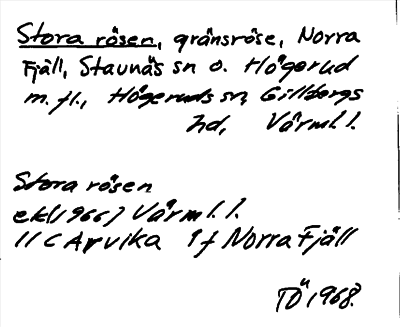 Stora rösen, gränsröse, Norra
Fjäll, Stavnäs sn o. Högerud
m. fl., Högeruds sn, Gillbergs
hd, Värml. l.
Stora rösen
ekl(1966) Värml. l.
11 C Arvika 1 f Norra Fjäll
TÖ 1968.